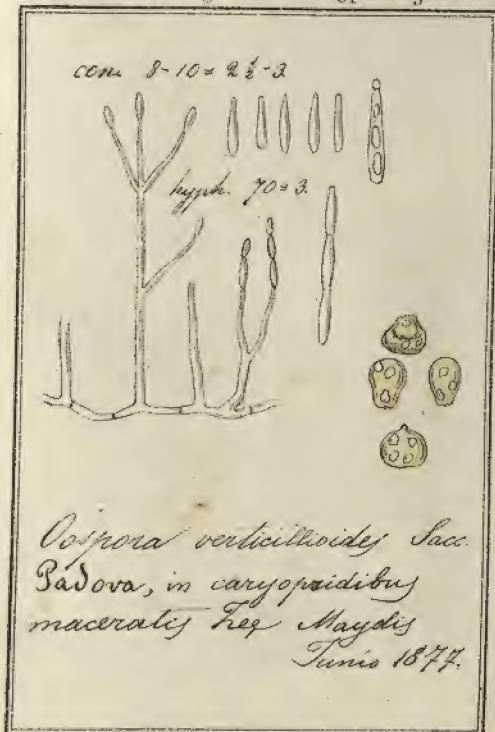 con. 8-10 = 2 ½ - 3.
hyph. 70 = 3.
Oospora verticillioides Sacc.
Padova, in caryopsidibus
maceratis Zeæ Maydis
Junio 1877.